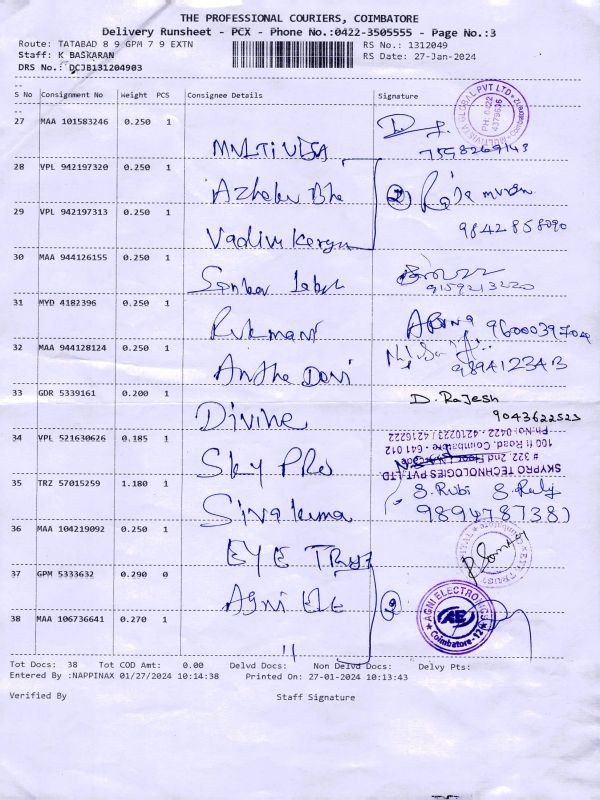 THE PROFESSIONAL COURIERS, COIMBATORE
Delivery Runsheet - PCX - Phone No.:0422-3505555 - Page No.:3
Route: TATABAD 8 9 GPM 7 9 EXTN RS No.: 1312049
Staff: K BASKARAN RS Date: 27-Jan-2024
DRS No.: DCJB131204903
S No Consignment No Weight PCS Consignee Details Signature
27 MAA 101583246 0.250 1
MULTIVISTA
7598269143
28 VPL 942197320 0.250 1
29 VPL 942197313 0.250 1
9842858090
30 MAA 944126155 0.250 1
9159213220
31 MYD 4182396 0.250 1
Rukmani
32 MAA 944128124 0.250 1
9894123413
33 GDR 5339161 0.200 1 D. Rajesh
Divine 9043622523
34 VPL 521630626 0.185 1
Sky Pro
SKYPRO TECHNOLOGIES PVT LTD
# 322, 2nd Floor
100 ft Road, Coimbatore - 641 012
Ph.No: 0422 - 4210223 / 4216222
35 TRZ 57015259 1.180 1 S. Rubi
Siva kuma 9894787381
36 MAA 104219092 0.250 1
EYE TRUST
37 GPM 5333632 0.290 0
Agni ELE
AGNI ELECTRONICS
Coimbatore-12
38 MAA 106736641 0.270 1
"
Tot Docs: 38 Tot COD Amt: 0.00 Delvd Docs: Non Delvd Docs: Delvy Pts:
Entered By :NAPPINAX 01/27/2024 10:14:38 Printed On: 27-01-2024 10:13:43
Verified By Staff Signature